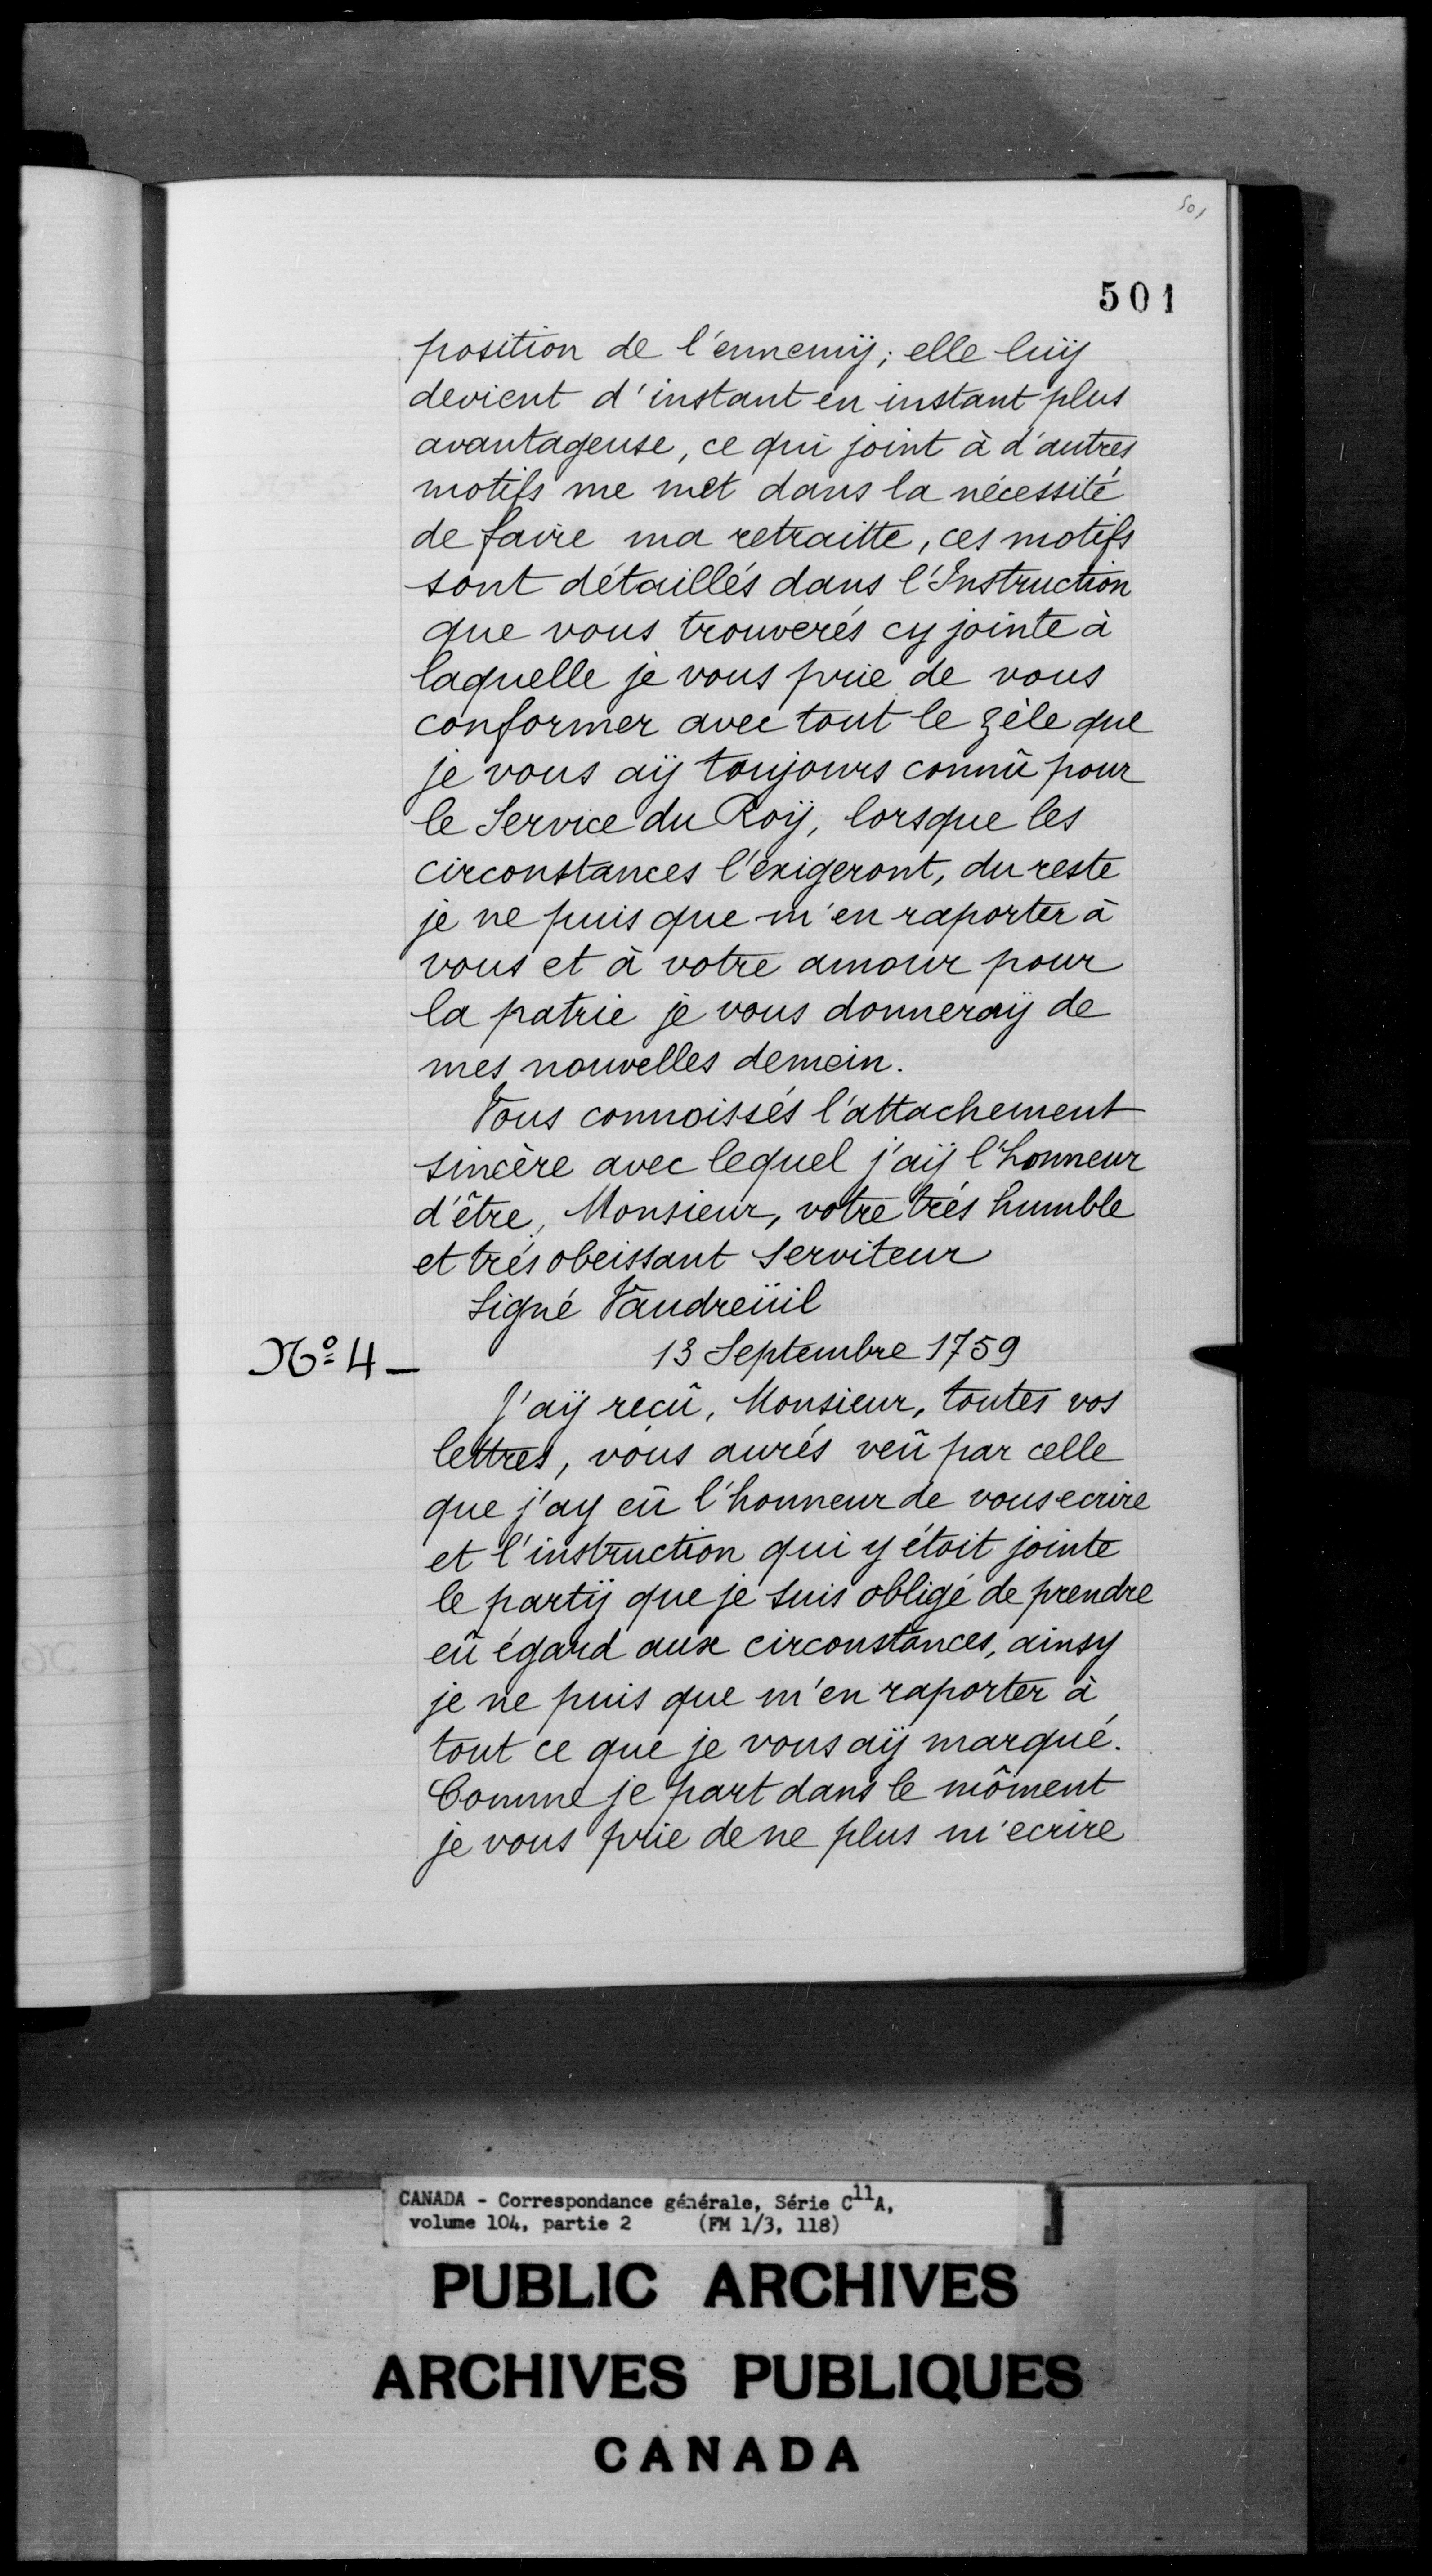 501
501
position de l'ennemÿ; elle luÿ
devient d'instant en instant plus
avantageuse, ce qui joint à d'autres
motifs me met dans la nécessité
de faire ma retraitte, ces motifs
sont détaillés dans l'Instruction
que vous trouverés cy jointe à
laquelle je vous prie de vous
conformer avec tout le zèle que
je vous aÿ toujours connû pour
le Service du Roÿ, lorsque les
circonstances l'exigeront, du reste
je ne puis que m'en raporter à
vous et à votre amour pour
la patrie je vous donneraÿ de
mes nouvelles demain.
Vous connoissés l'attachement
sincère avec lequel j'aÿ l'honneur
d'être, Monsieur, votre trés humble
et trés obeissant Serviteur
Signé Vaudreüil
Nº 4 - 13 Septembre 1759
J'aÿ recû, Monsieur, toutes vos
lettres, vous aurés veû par celle
que j'ay eû l'honneur de vous ecrire
et l'instruction qui y étoit jointe
le partÿ que je suis obligé de prendre
eû égard aux circonstances, ainsy
je ne puis que m'en raporter à
tout ce que je vous aÿ marqué.
Comme je part dans le môment
je vous prie de ne plus m'ecrire
CANADA - Correspondance générale, Série C11A,
volume 104, partie 2 (FM 1/3, 118)
PUBLIC ARCHIVES
ARCHIVES PUBLIQUES
CANADA